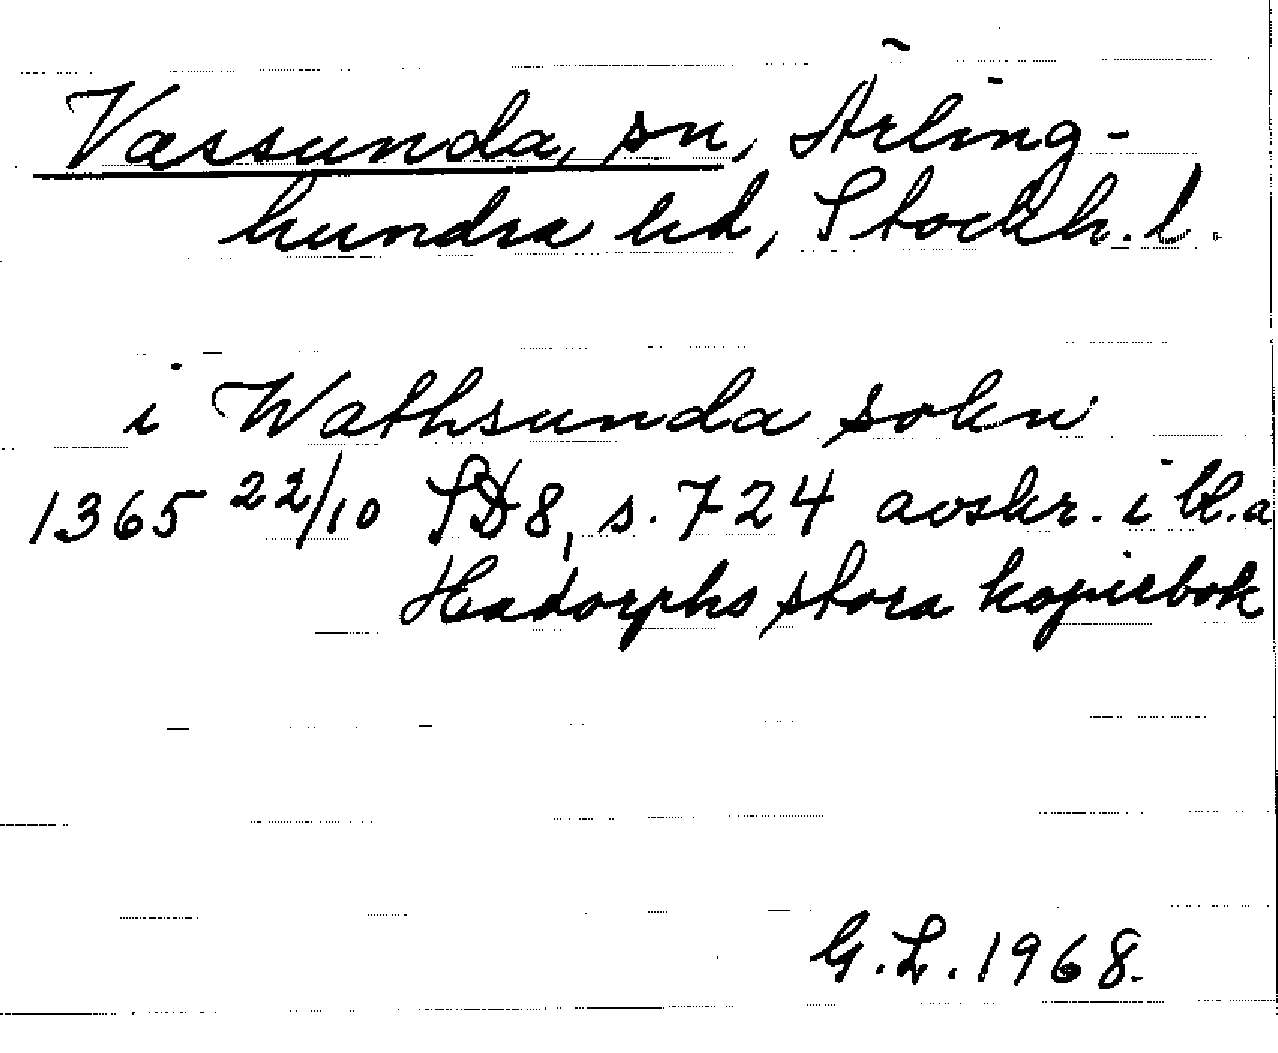 Vassunda, sn, Ärling-
hundra hd, Stockh. l.
i Wathsunda sokn
1365 22/10 SD8, s. 724 avskr. i bl.a
Hadorphs stora kopiebok
G.L. 1968.